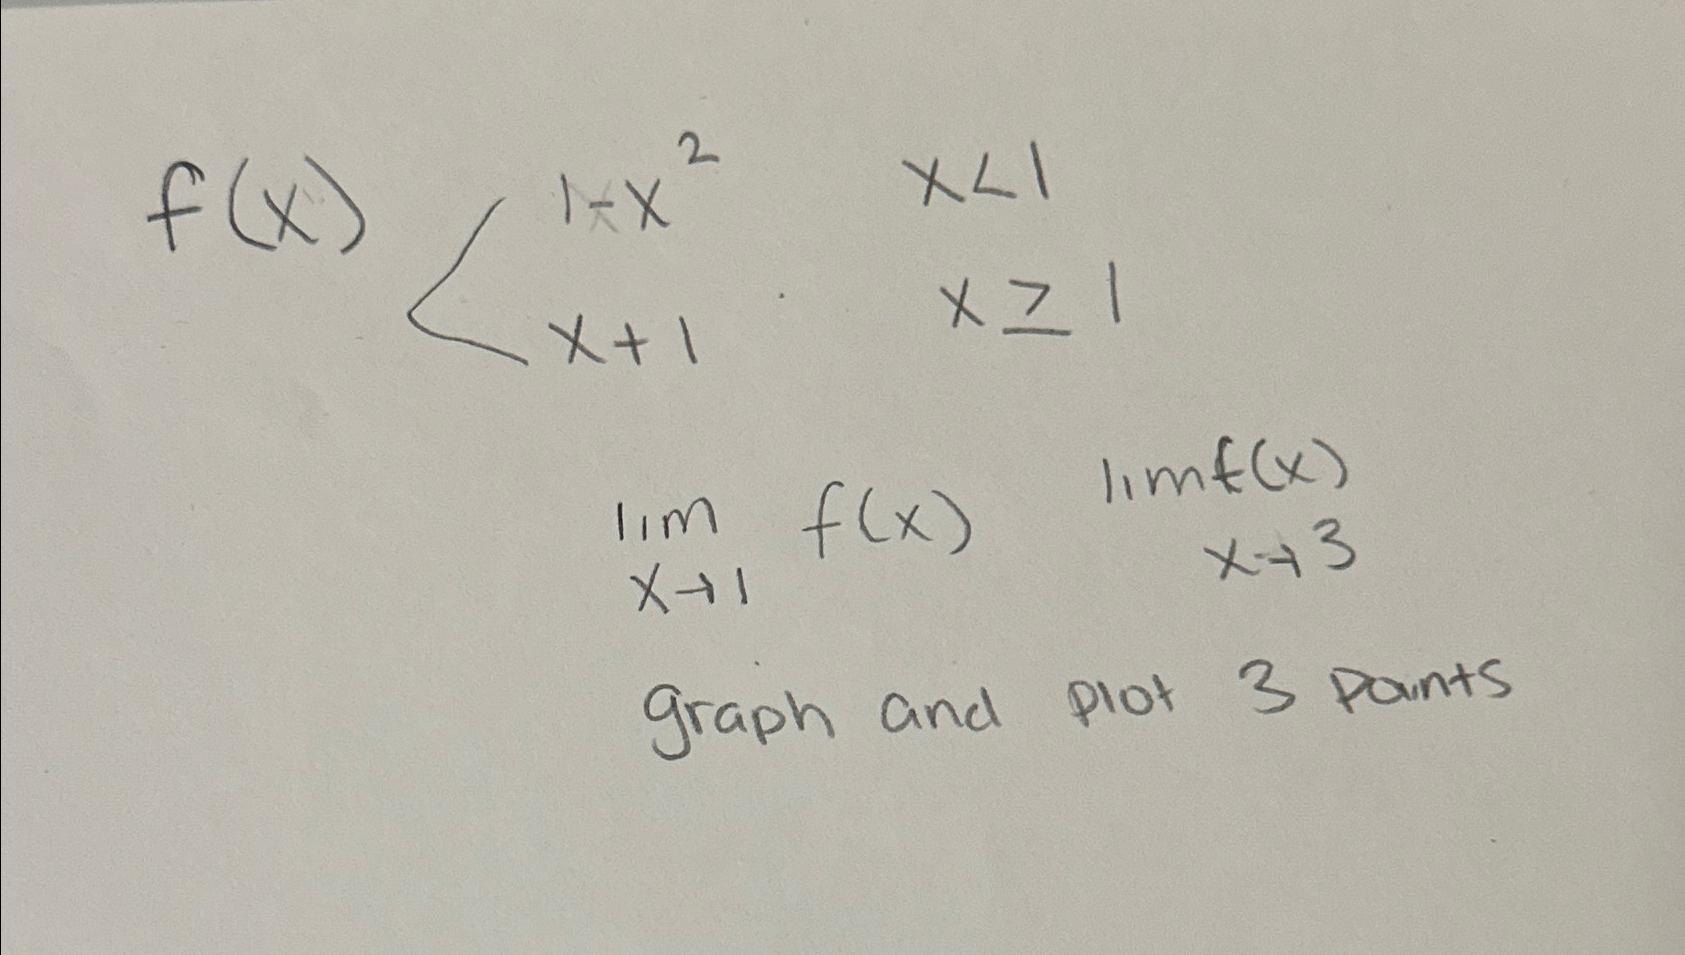 f(x) 1-x² x<1
x+1 x≥1
lim f(x) limf(x)
x→1 x→3
graph and plot 3 points